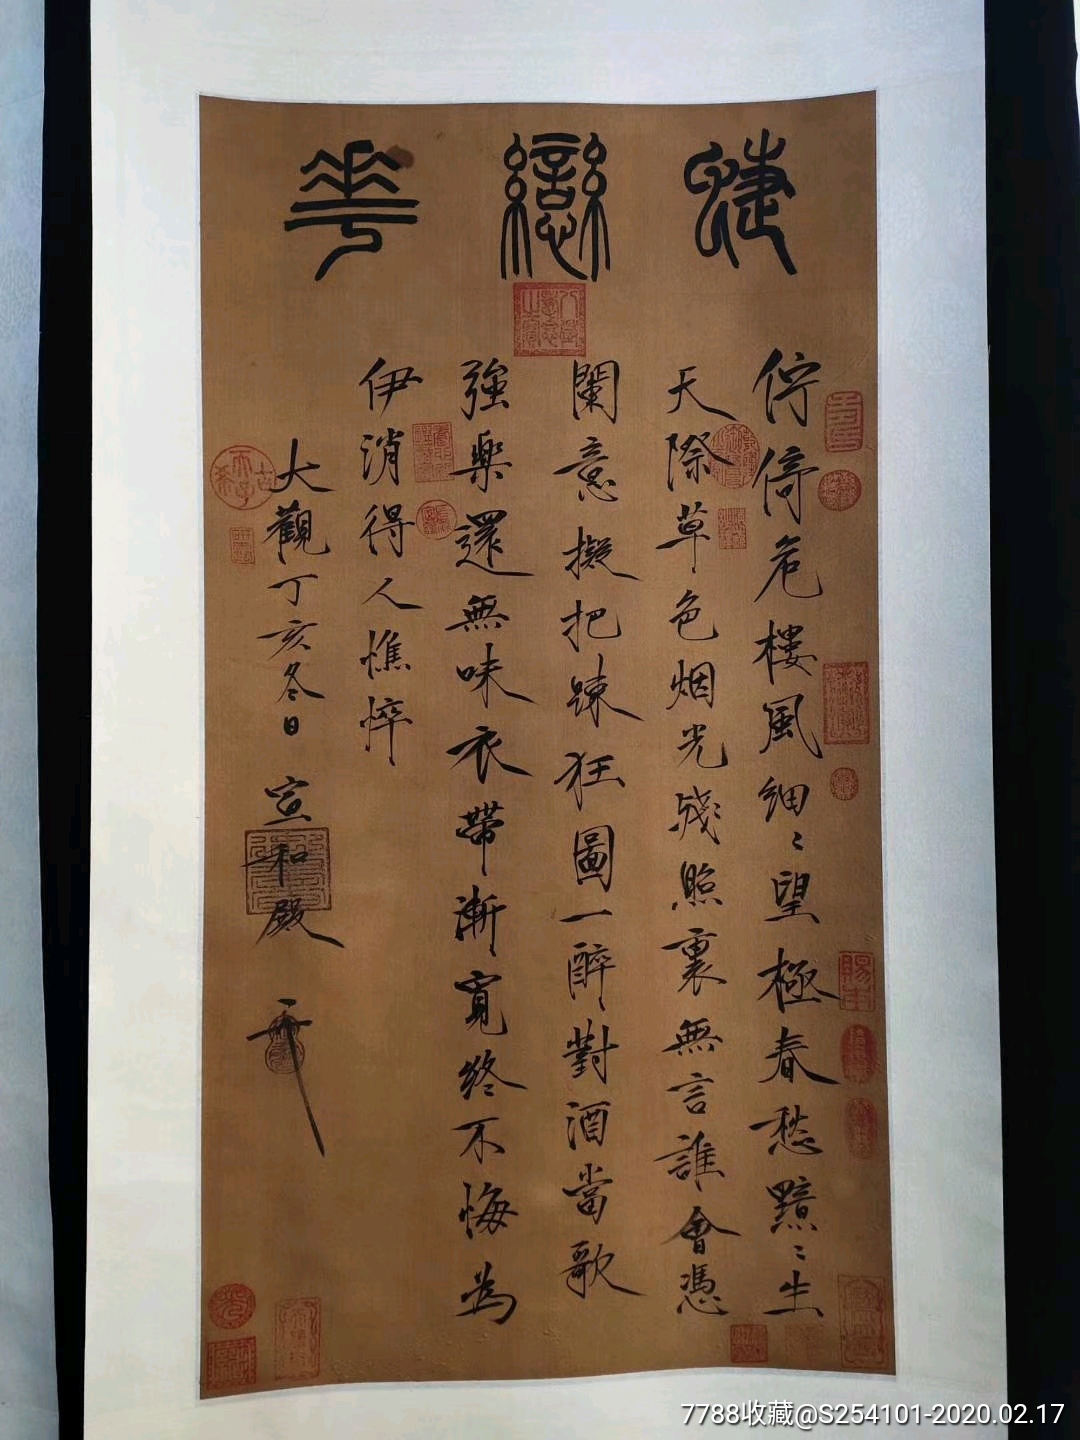 蜨戀華
佇倚危樓風細〻望極春愁黯〻生
天際草色烟光殘照裏無言誰會憑
闌意擬把踈狂圖一醉對酒當歌
強樂還無味衣帶漸寬終不悔為
伊消得人憔悴
大觀丁亥冬日 宣和殿
八徵耄念之寶
古希天子
7788收藏@S254101-2020.02.17